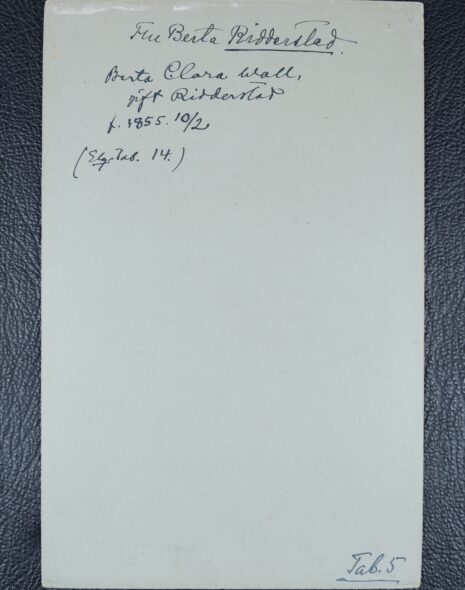 Fru Berta Ridderstad.
Berta Clara Wall,
gift Ridderstad
f. 1855. 10/2
(Elg. Tab. 14.)
Tab. 5